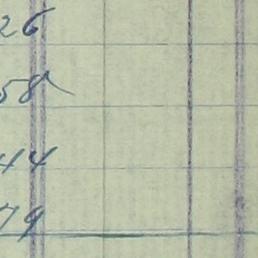 26
58
44
79